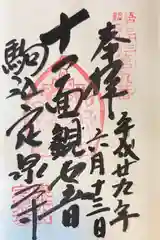 奉拝
平成廿九年
六月十三日
十一面観世音
駒込定泉寺